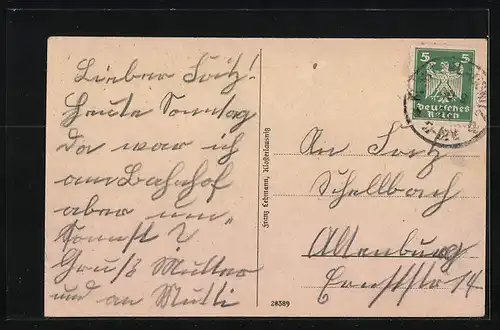 Lieber Fritz!
Heute Sonntag
da war ich
am Bahnhof
aber um-
sonnst?
Gruß Mutter
und an Mutti
Franz Lehmann, Klosterlausnitz
28389
5 5
Deutsches
Reich
An Fritz
Schellbach
Altenburg
Ernststr 14